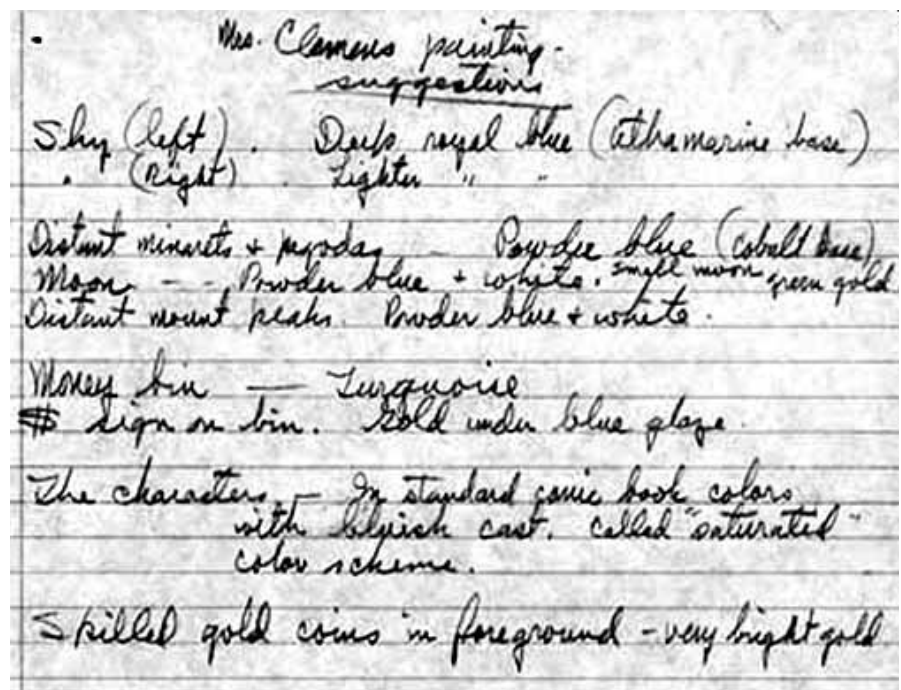 Mrs. Clemens painting -
suggestions
Sky (left) . Dark royal blue (ultramarine base)
" (Right) . Lighter " "
Distant minarets + pagodas - Powder blue (cobalt base)
Moon - - Powder blue + white. small moon green gold
Distant mount peaks. Powder blue + white.
Money bin — Turquoise
$ sign on bin. Gold under blue glaze.
The characters. - In standard comic book colors
with bluish cast. called "saturated"
color scheme.
Spilled gold coins in foreground - very bright gold